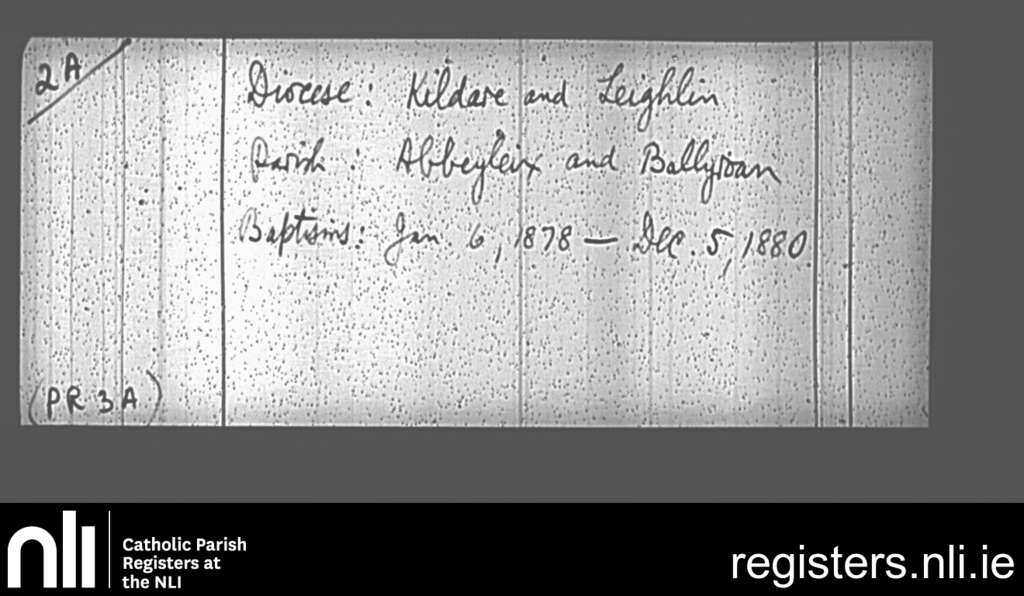 2A
Diocese: Kildare and Leighlin
Parish: Abbeyleix and Ballyroan
Baptisms: Jan. 6, 1878 — Dec. 5, 1880.
(PR 3A)
nli
Catholic Parish
Registers at
the NLI
registers.nli.ie